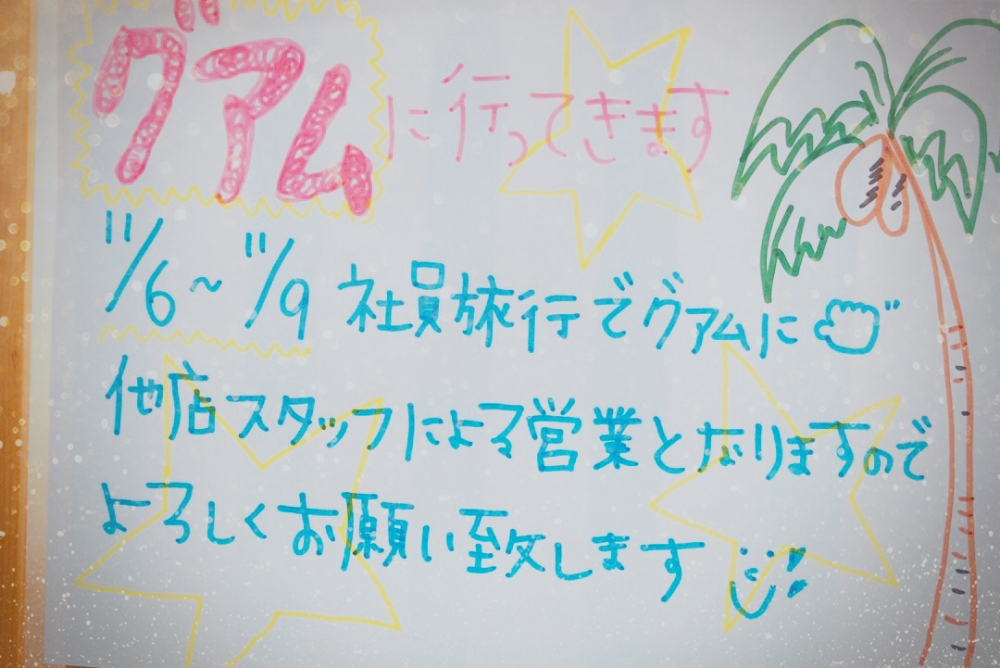 グアムに行ってきます
11/6~11/9 社員旅行でグアムに
他店スタッフによる営業となりますので
よろしくお願い致します